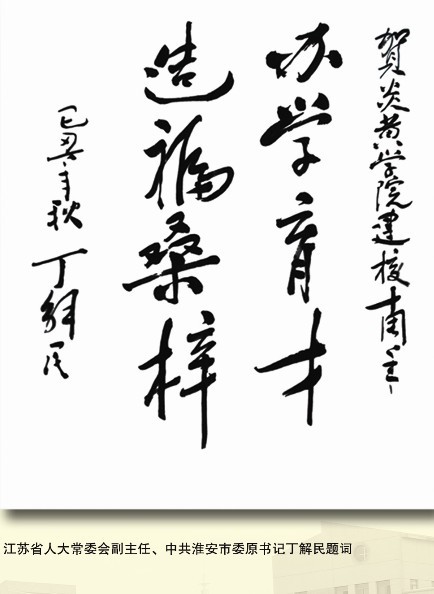 贺炎黄学院建校周年
办学育才
造福桑梓
己丑年秋 丁解民
江苏省人大常委会副主任、中共淮安市委原书记丁解民题词